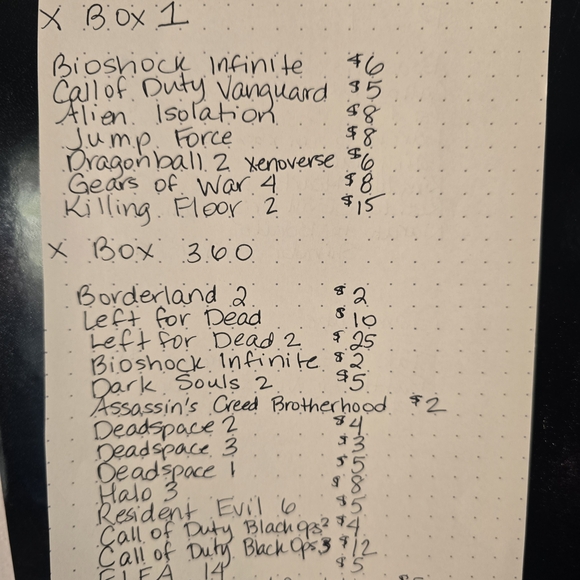 X BOX 1
Bioshock Infinite $6
Call of Duty Vanguard $5
Alien Isolation $8
Jump Force $8
Dragonball 2 xenoverse $6
Gears of War 4 $8
Killing Floor 2 $15
X BOX 360
Borderland 2 $2
Left for Dead $10
Left for Dead 2 $25
Bioshock Infinite $2
Dark Souls 2 $5
Assassin's Creed Brotherhood $2
Deadspace 2 $4
Deadspace 3 $3
Deadspace 1 $5
Halo 3 $8
Resident Evil 6 $5
Call of Duty Black Ops 2 $4
Call of Duty Black Ops 3 $12
14 $5